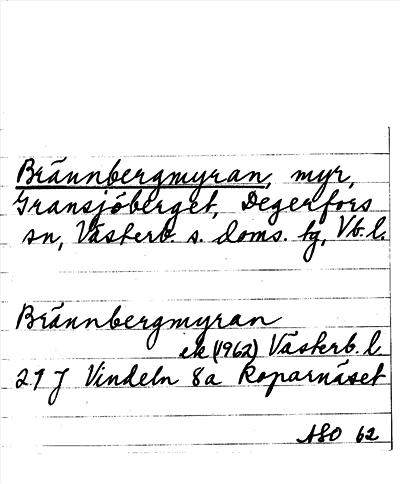 Brännbergmyran, myr,
Gransjöberget, Degerfors
sn, Västerb. s. doms. tg, Vb. l.
Brännbergmyran
ek (1962) Västerb. l
21 J Vindeln 8a Koparnäset
ASO 62